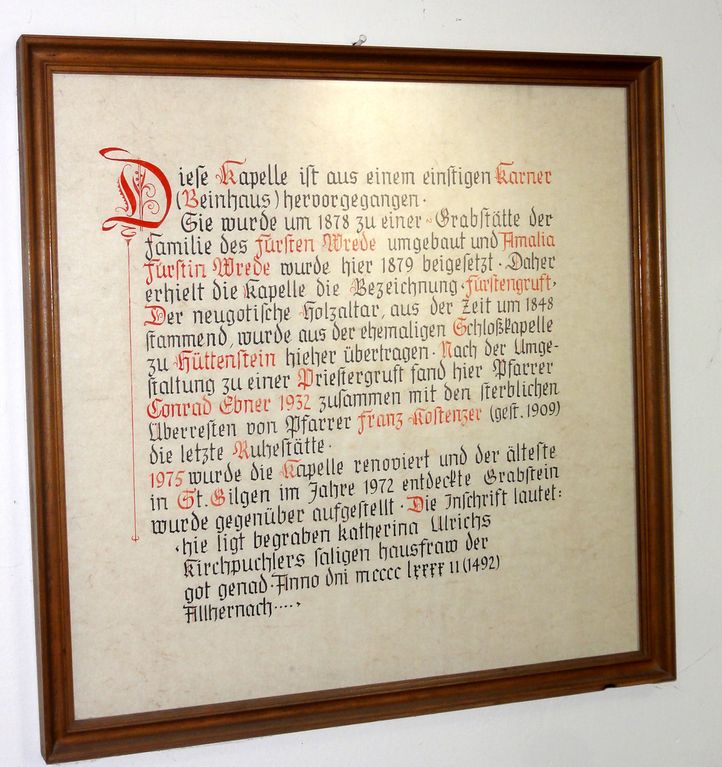 Diese Kapelle ist aus einem einstigen Karner
(Beinhaus) hervorgegangen.
Sie wurde um 1878 zu einer Grabstätte der
Familie des Fürsten Wrede umgebaut und Amalia
Fürstin Wrede wurde hier 1879 beigesetzt. Daher
erhielt die Kapelle die Bezeichnung Fürstengruft.
Der neugotische Holzaltar, aus der Zeit um 1848
stammend, wurde aus der ehemaligen Schloßkapelle
zu Hüttenstein hieher übertragen. Nach der Umge-
staltung zu einer Priestergruft fand hier Pfarrer
Conrad Ebner 1932 zusammen mit den sterblichen
Überresten von Pfarrer Franz Kostenzer (gest. 1909)
die letzte Ruhestätte.
1975 wurde die Kapelle renoviert und der älteste
in St. Gilgen im Jahre 1972 entdeckte Grabstein
wurde gegenüber aufgestellt. Die Inschrift lautet:
hie ligt begraben katherina Ulrichs
Kirchpuchlers saligen hausfraw der
got genad. Anno dni mcccc lxxxx II (1492)
Allhernach....